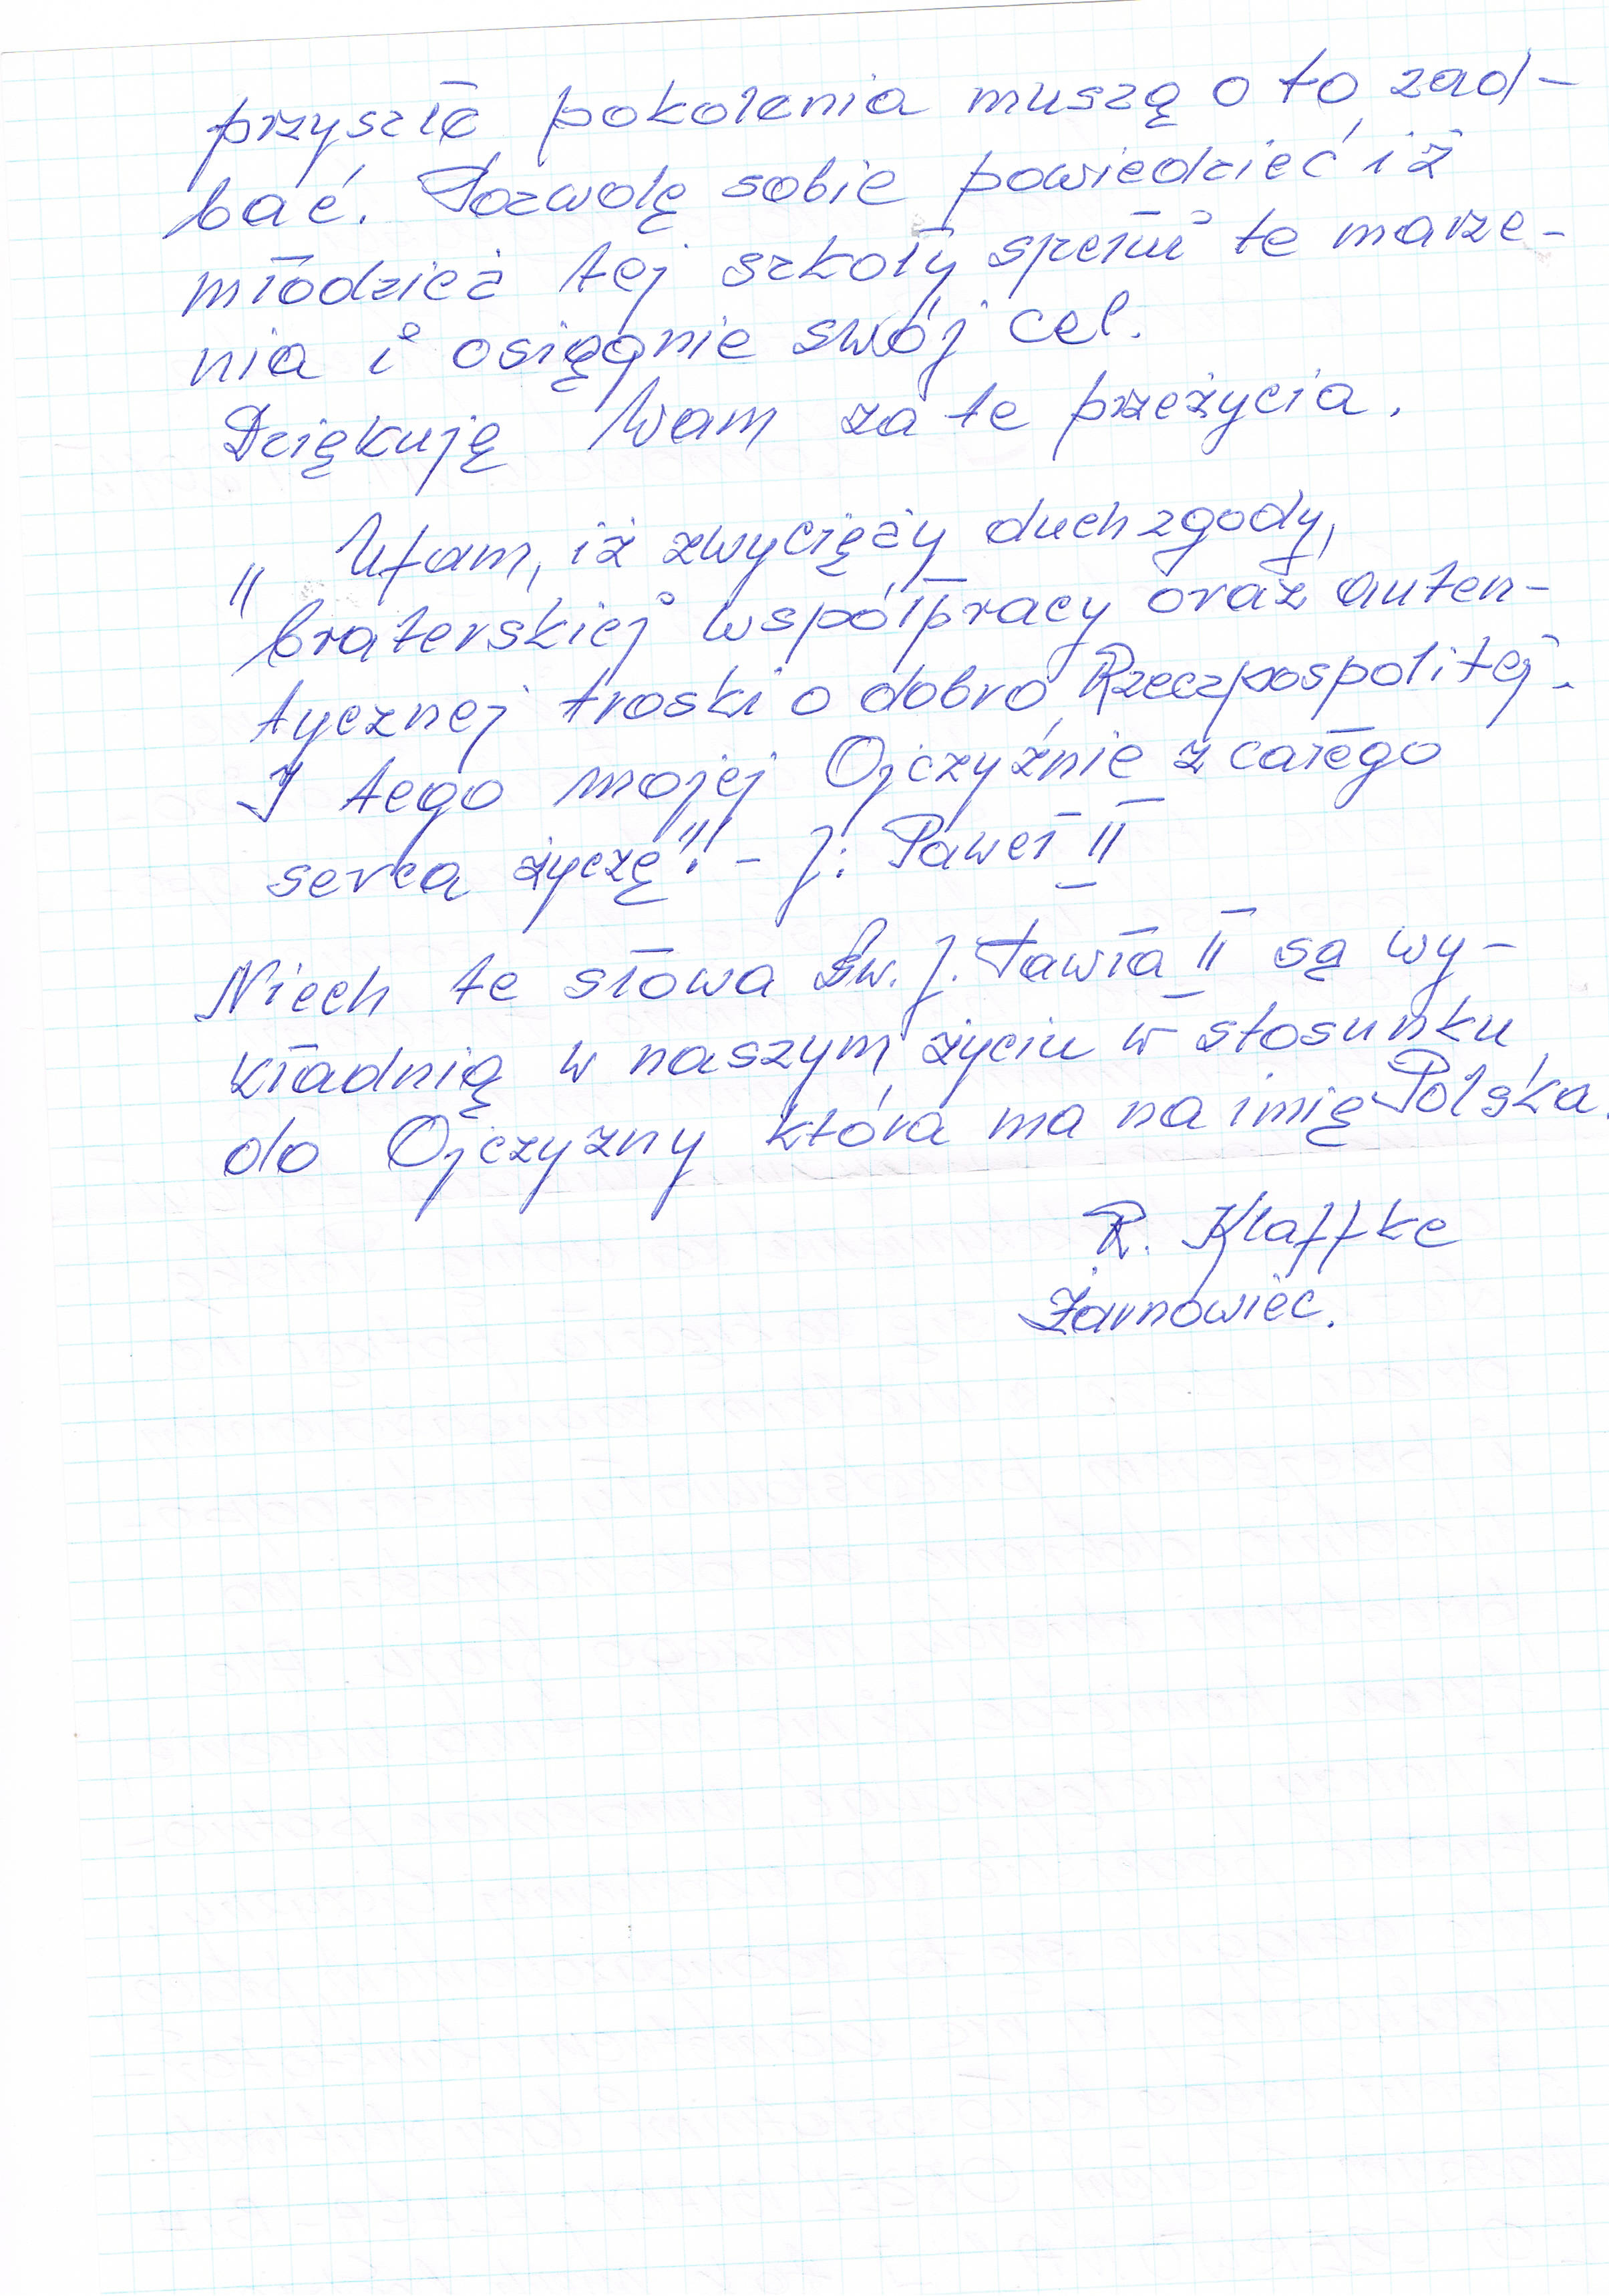 przyszłe pokolenia muszą o to zad-
bać. Pozwolę sobie powiedzieć iż
młodzież tej szkoły spełni te marze-
nia i osięgnie swój cel.
Dziękuję Wam za te przeżycia.
" Ufam, iż zwycięży duch zgody,
braterskiej współpracy oraz auten-
tycznej troski o dobro Rzeczpospolitej.
I tego mojej Ojczyźnie z całego
serca życzę"! - J: Paweł II
Niech te słowa Św. J. Pawła II są wy-
kładnią w naszym życiu w stosunku
do Ojczyzny która ma na imię Polska.
R. Klaffke
Żarnowiec.